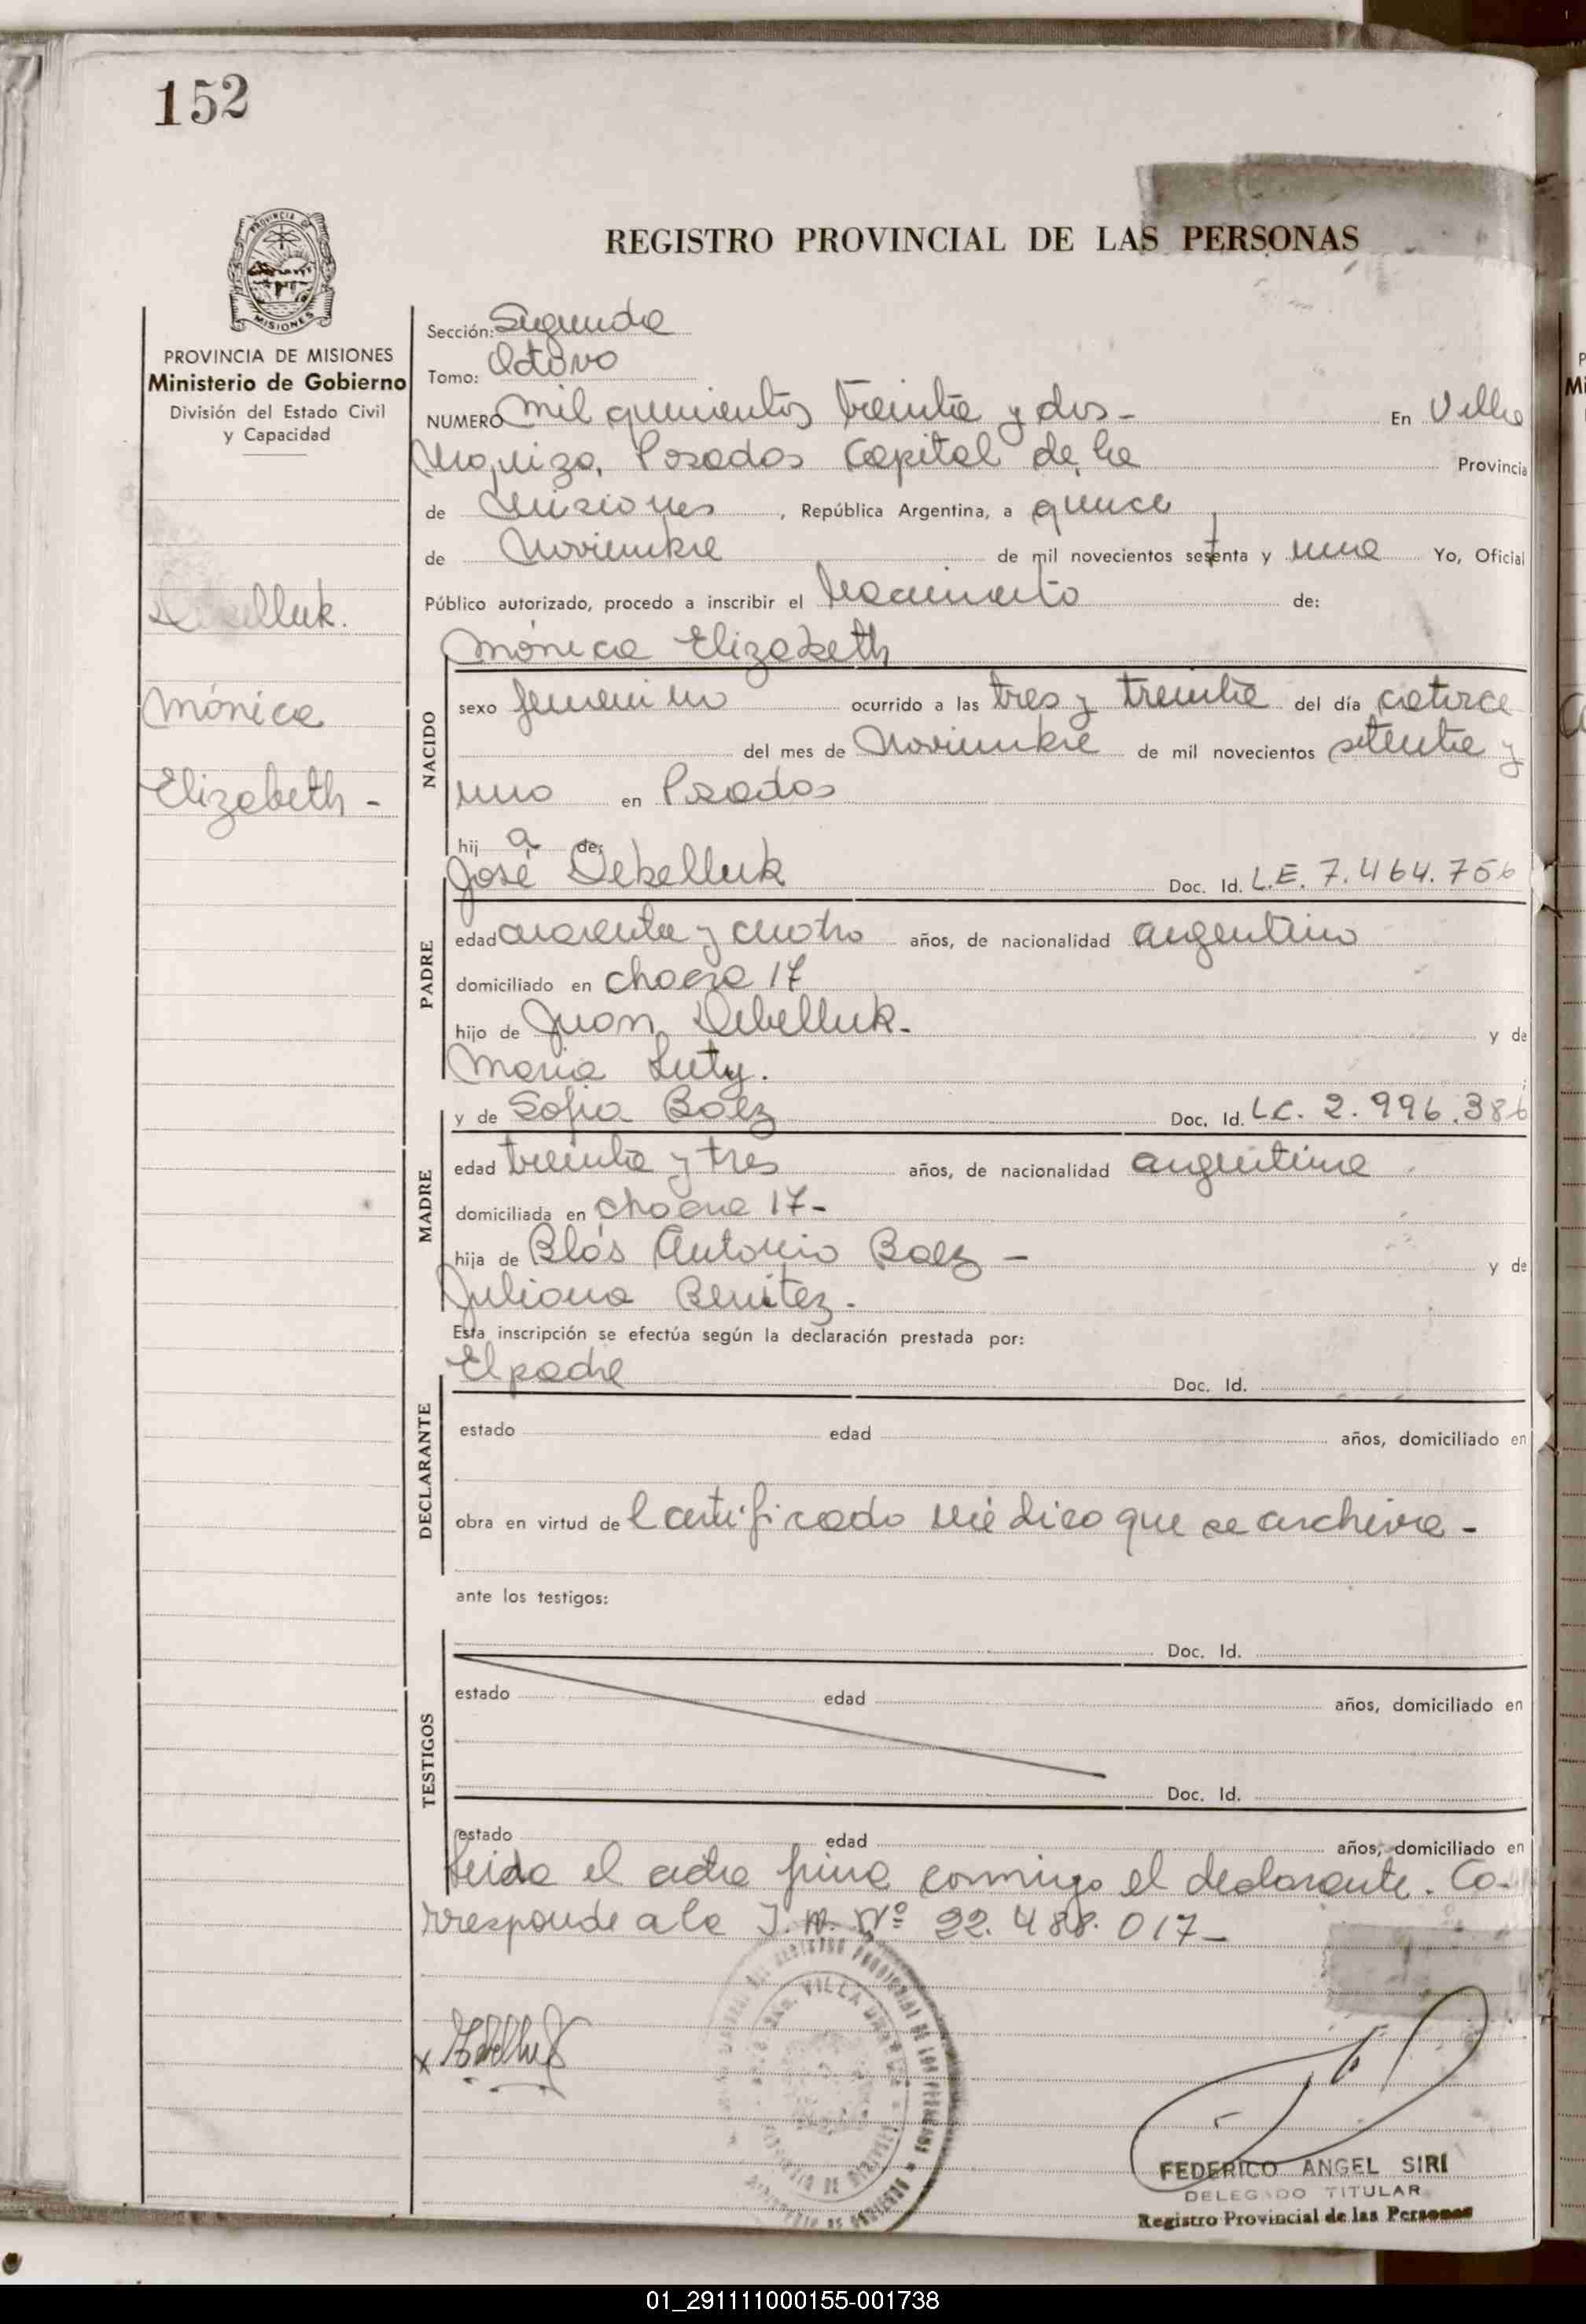 152
REGISTRO PROVINCIAL DE LAS PERSONAS
PROVINCIA DE MISIONES
MISIONES
PROVINCIA DE MISIONES
Ministerio de Gobierno
División del Estado Civil
y Capacidad
Debelluk.
Mónica
Elizabeth -
Sección: Segunda
Tomo: Octavo
NUMERO mil quinientos treinta y dos - En Villa
Urquiza, Posadas Capital de la Provincia
de Misiones, República Argentina, a quince
de Noviembre de mil novecientos setenta y uno Yo, Oficial
Público autorizado, procedo a inscribir el Nacimiento de:
Mónica Elizabeth
NACIDO
sexo femenino ocurrido a las tres y treinta del día catorce
del mes de Noviembre de mil novecientos setenta y
uno en Posadas
hija de:
José Debelluk Doc. Id. L.E. 7.464.756
PADRE
edad cuarenta y cuatro años, de nacionalidad argentino
domiciliado en chacra 17
hijo de Juan Debelluk. y de
Maria Luty.
y de Sofia Baez Doc. Id. L.C. 2.996.386
MADRE
edad treinta y tres años, de nacionalidad argentina
domiciliada en chacra 17-
hija de Blás Antonio Baez - y de
Juliana Benitez.
Esta inscripción se efectúa según la declaración prestada por:
El padre Doc. Id.
DECLARANTE
estado edad años, domiciliado en
obra en virtud del certificado médico que se archiva -
ante los testigos:
Doc. Id.
TESTIGOS
estado edad años, domiciliado en
Doc. Id.
estado edad años, domiciliado en
Leida el acta firma conmigo el declarante. Co-
rresponde a la I.N. Nº 22.488.017-
VILLA URQUIZA
FEDERICO ANGEL SIRI
DELEGADO TITULAR
Registro Provincial de las Personas
01_291111000155-001738